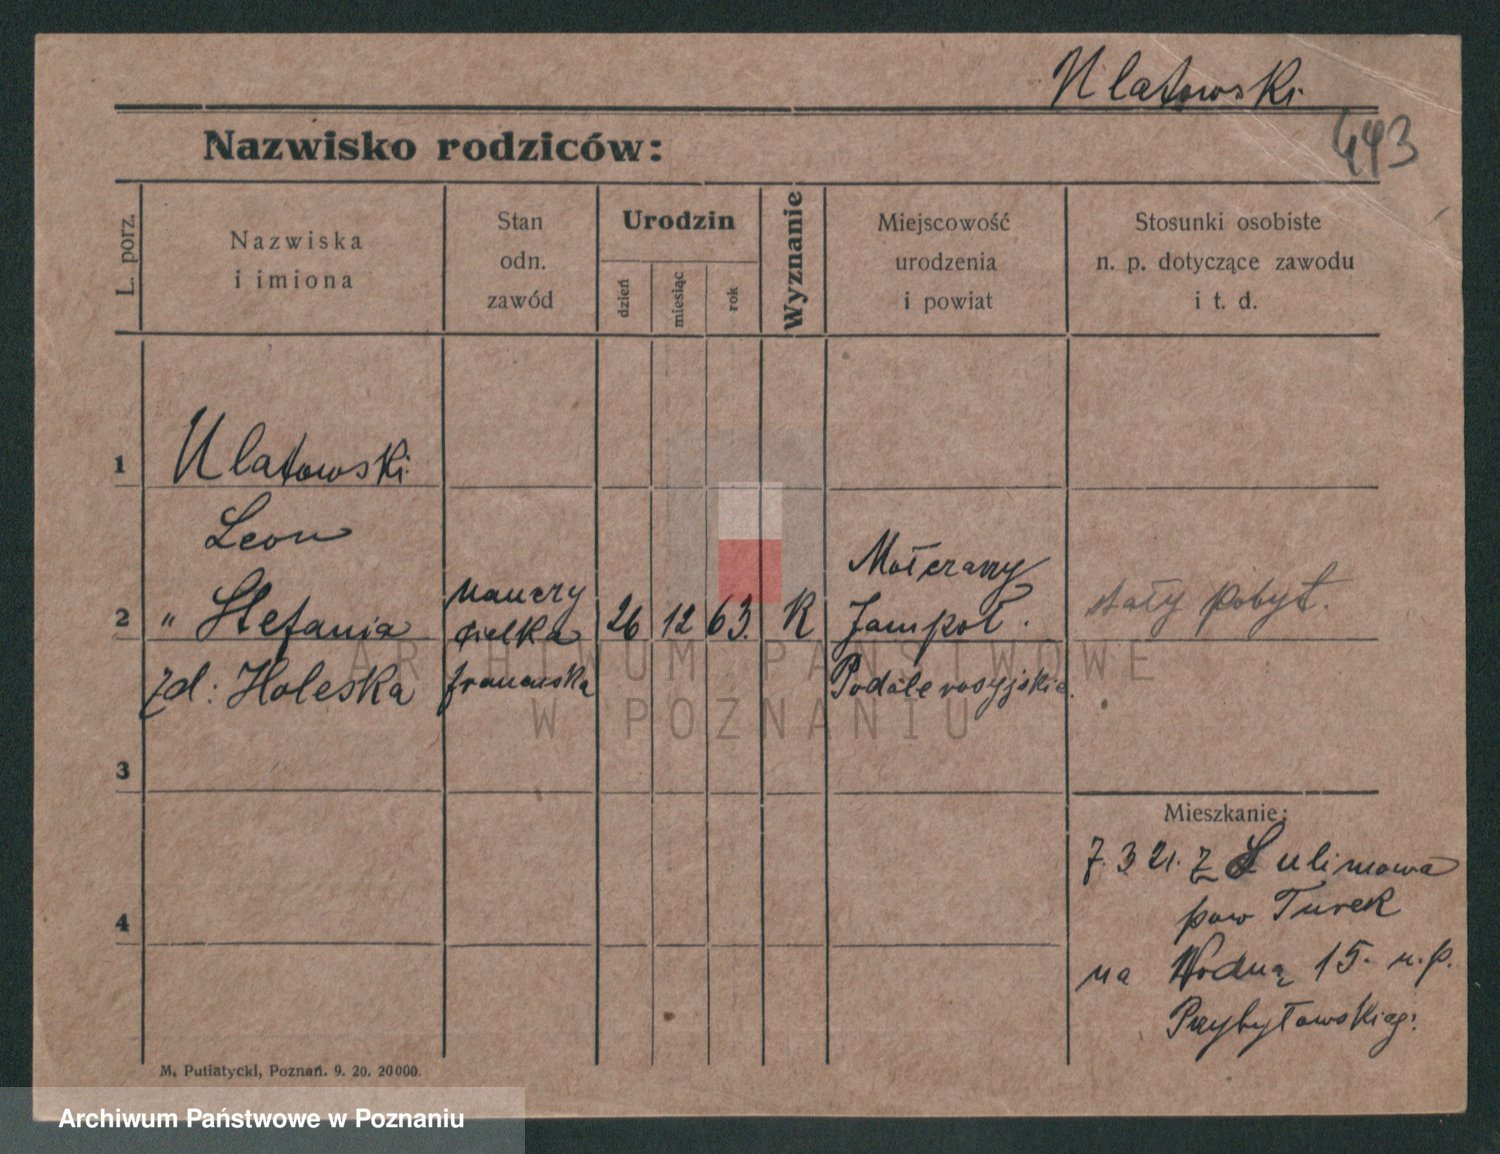 Ulatowski
443
Nazwisko rodziców:
L. porz.
Nazwiska
i imiona
Stan
odn.
zawód
Urodzin
dzień
miesiąc
rok
Wyznanie
Miejscowość
urodzenia
i powiat
Stosunki osobiste
n. p. dotyczące zawodu
i t. d.
1
Ulatowski
Leon
2
" Stefania
zd: Holeska
nauczy
cielka
francuska
26 12 63. R
Mołczany
Jampol.
Podole rosyjskie.
stały pobyt.
3
4
Mieszkanie:
7. 3 21. z Lulimowa
pow Turek
na Wodną 15. u. p.
Przybyłowskieg:
M. Putiatycki, Poznań. 9. 20. 20000.
ARCHIWUM PAŃSTWOWE
W POZNANIU
Archiwum Państwowe w Poznaniu